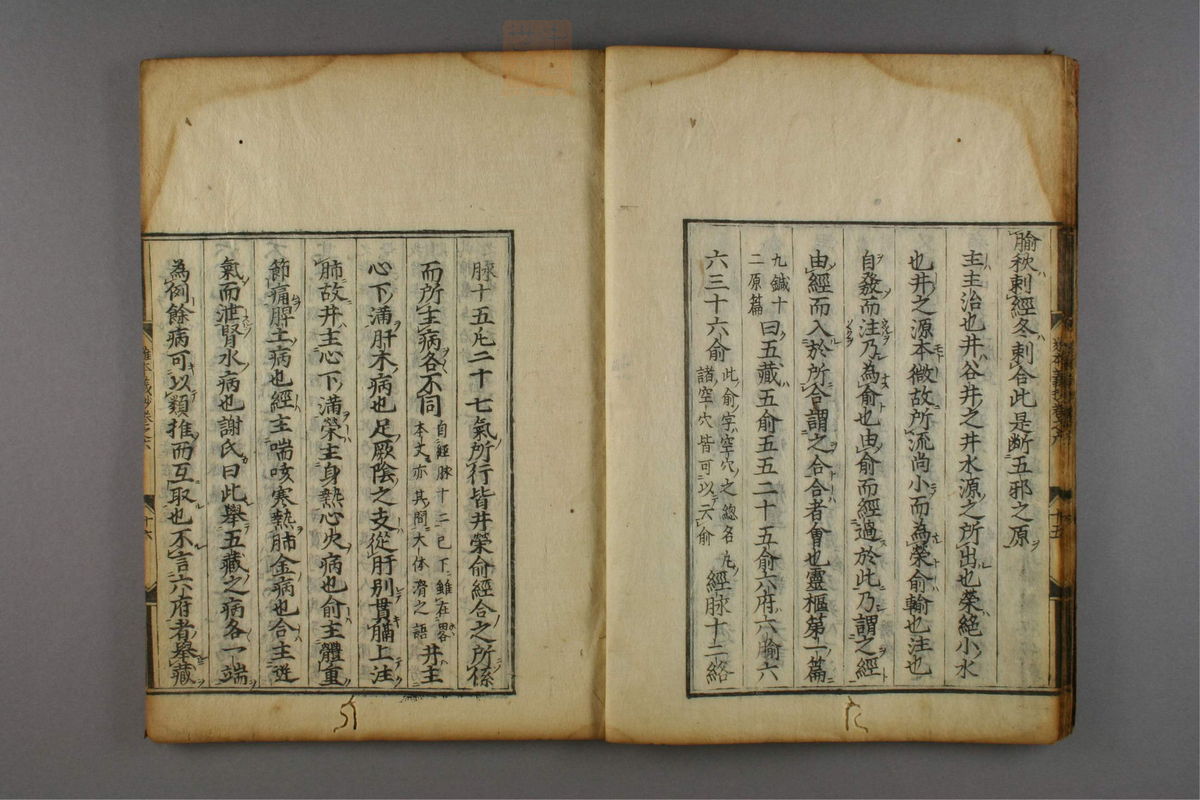 腧秋刺經冬刺合此是断五邪之原
主主治也井谷井之井水源之所出也榮絶小水
也井之源本微故所流尚小而為榮俞輸也注也
自發而注乃為俞也由俞而經過於此乃謂之經
由經而入於所合謂之合合者會也靈樞苐一篇
九鍼十
二原篇
曰五藏五俞五五二十五俞六府六腧六
六三十六俞
此俞字空穴之総名凡
諸空穴皆可以云俞
經脉十二絡
脉十五凡二十七氣所行皆井榮俞經合之所係
而所主病各不同
自經脉十二已下雖在畧
本文亦其間大体滑之語
井主
心下滿肝木病也足厥陰之支從肝别貫膈上注
肺故井主心下滿榮主身熱心火病也俞主體重
節痛脾土病也經主喘咳寒熱肺金病也合主逆
氣而泄腎水病也謝氏曰此舉五藏之病各一端
為例餘病可以類推而互取也不言六府者舉藏
十五
十六